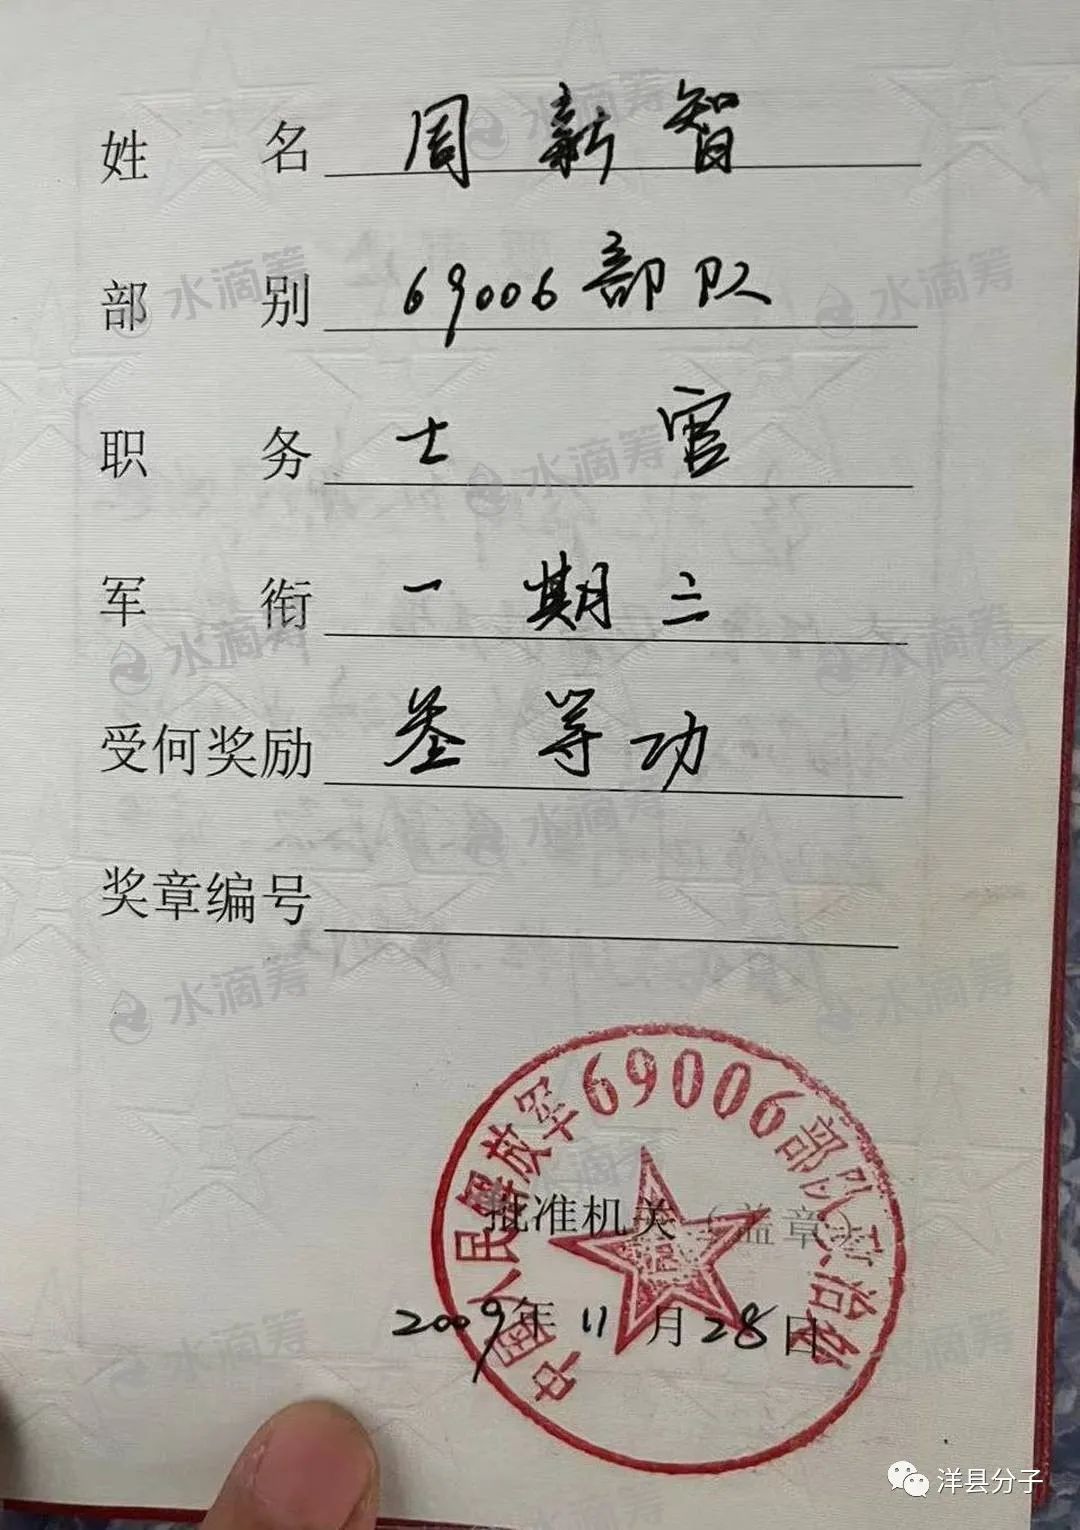 姓名 周新智
部别 69006部队
职务 士官
军衔 一期二
受何奖励 叁等功
奖章编号
中国人民解放军69006部队政治处
批准机关（盖章）
2009年11月28日
水滴筹
洋县分子